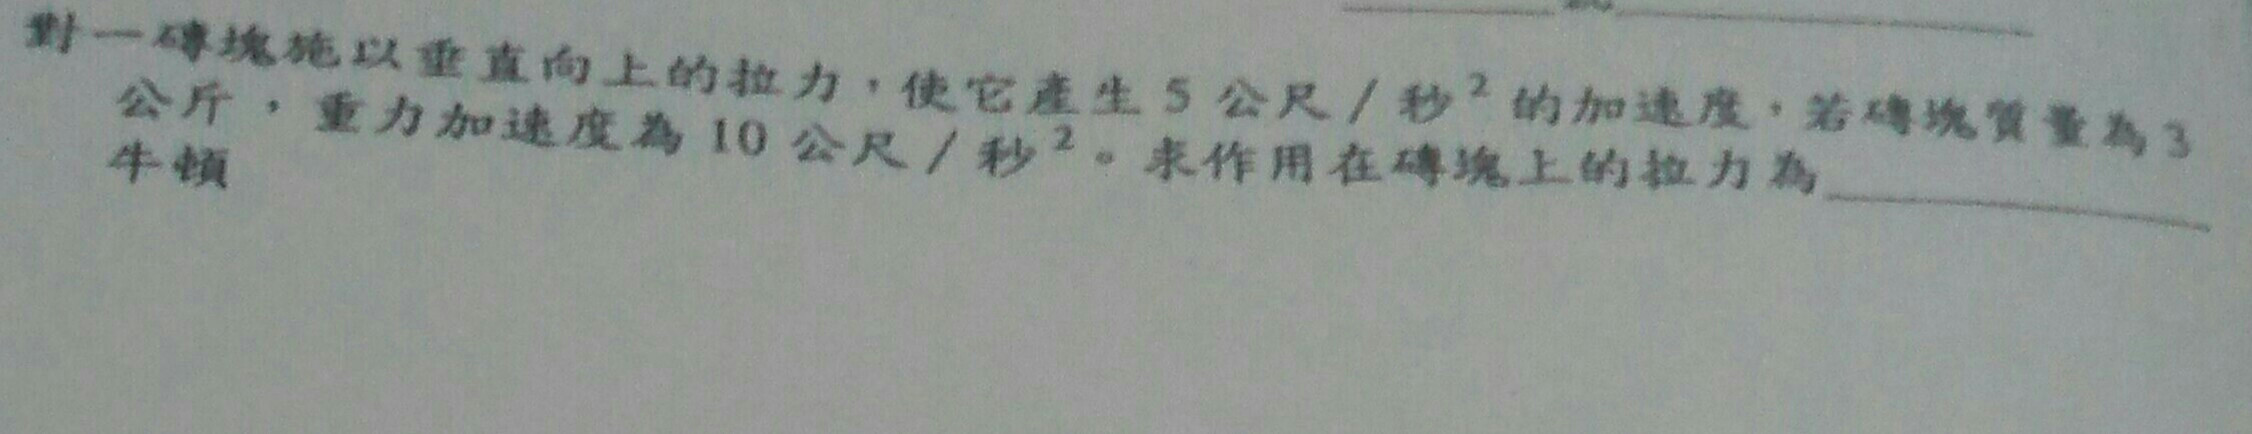 對一磚塊施以垂直向上的拉力，使它產生 5 公尺／秒² 的加速度，若磚塊質量為 3
公斤，重力加速度為 10 公尺／秒²。求作用在磚塊上的拉力為________
牛頓